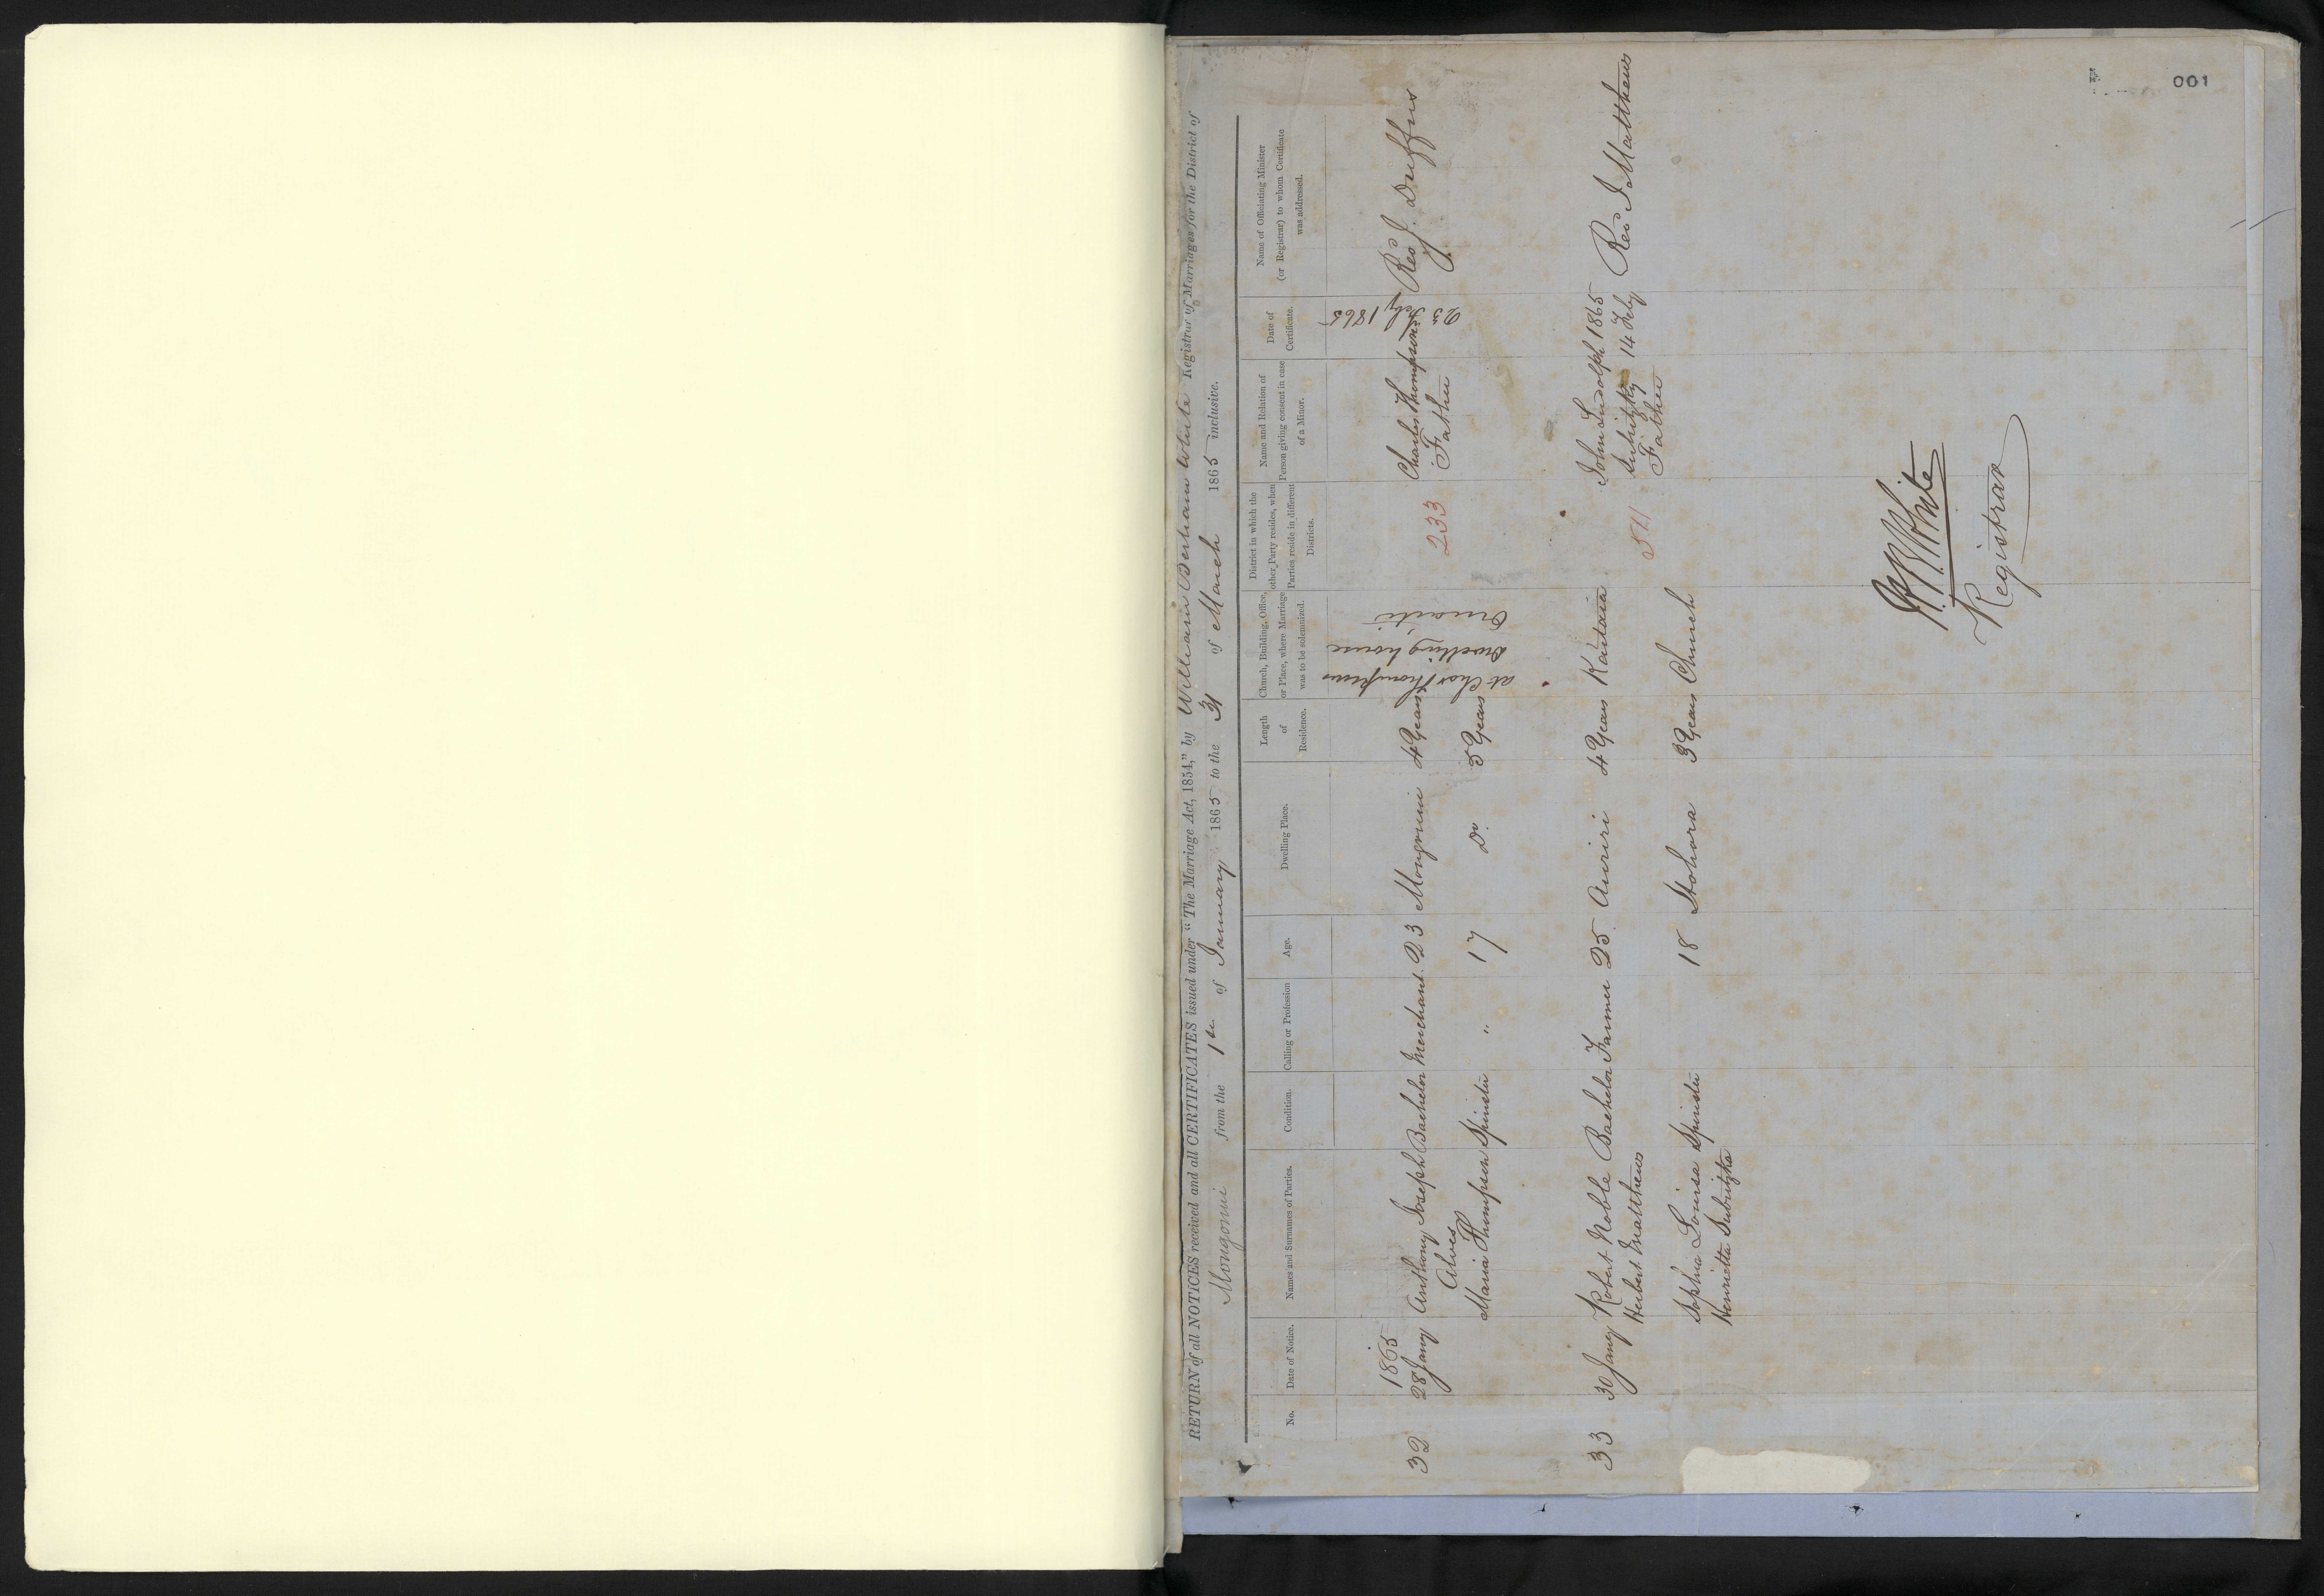 001
RETURN of all NOTICES received and all CERTIFICATES issued under "The Marriage Act, 1854," by William Bertram White Registrar of Marriages for the District of
Mongonui from the 1st of January 1865 to the 31 of March 1865 inclusive.
No.
Date of Notice.
Names and Surnames of Parties.
Condition.
Calling or Profession
Age.
Dwelling Place.
Length of Residence.
Church, Building, Office, or Place, where Marriage was to be solemnized.
District in which the other Party resides, when Parties reside in different Districts.
Name and Relation of Person giving consent in case of a Minor.
Date of Certificate.
Name of Officiating Minister (or Registrar) to whom Certificate was addressed.
1865
32 28 Jany Anthony Joseph Bachelor Merchant 23 Mongonui 4 Years Charles Thompson Rev J. Duffus
Alves 233 Father
Maria Thompson Spinster " 17 Do. 5 Years
at Chas Thompsons
dwelling house
Oruaiti
Feby 1865
33 30 Jany Robert Noble Bachelor Farmer 25 Awiriri 4 Years Kaitaia John Ludolph 1865 Rev J Matthews
Herbert Matthews 511 Subritzky 14 Feby
Father
Sophia Louisa Spinster 18 3 Years Church
Henrietta Subritzka
W.B. White
Registrar